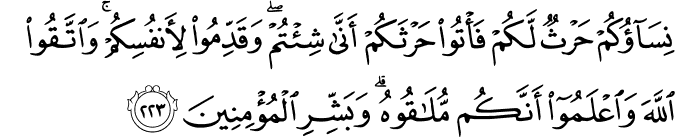 نِسَآؤُكُمْ حَرْثٌ لَّكُمْ فَأْتُوا۟ حَرْثَكُمْ أَنَّىٰ شِئْتُمْ ۖ وَقَدِّمُوا۟ لِأَنفُسِكُمْ ۚ وَٱتَّقُوا۟
ٱللَّهَ وَٱعْلَمُوٓا۟ أَنَّكُم مُّلَـٰقُوهُ ۗ وَبَشِّرِ ٱلْمُؤْمِنِينَ ٢٢٣